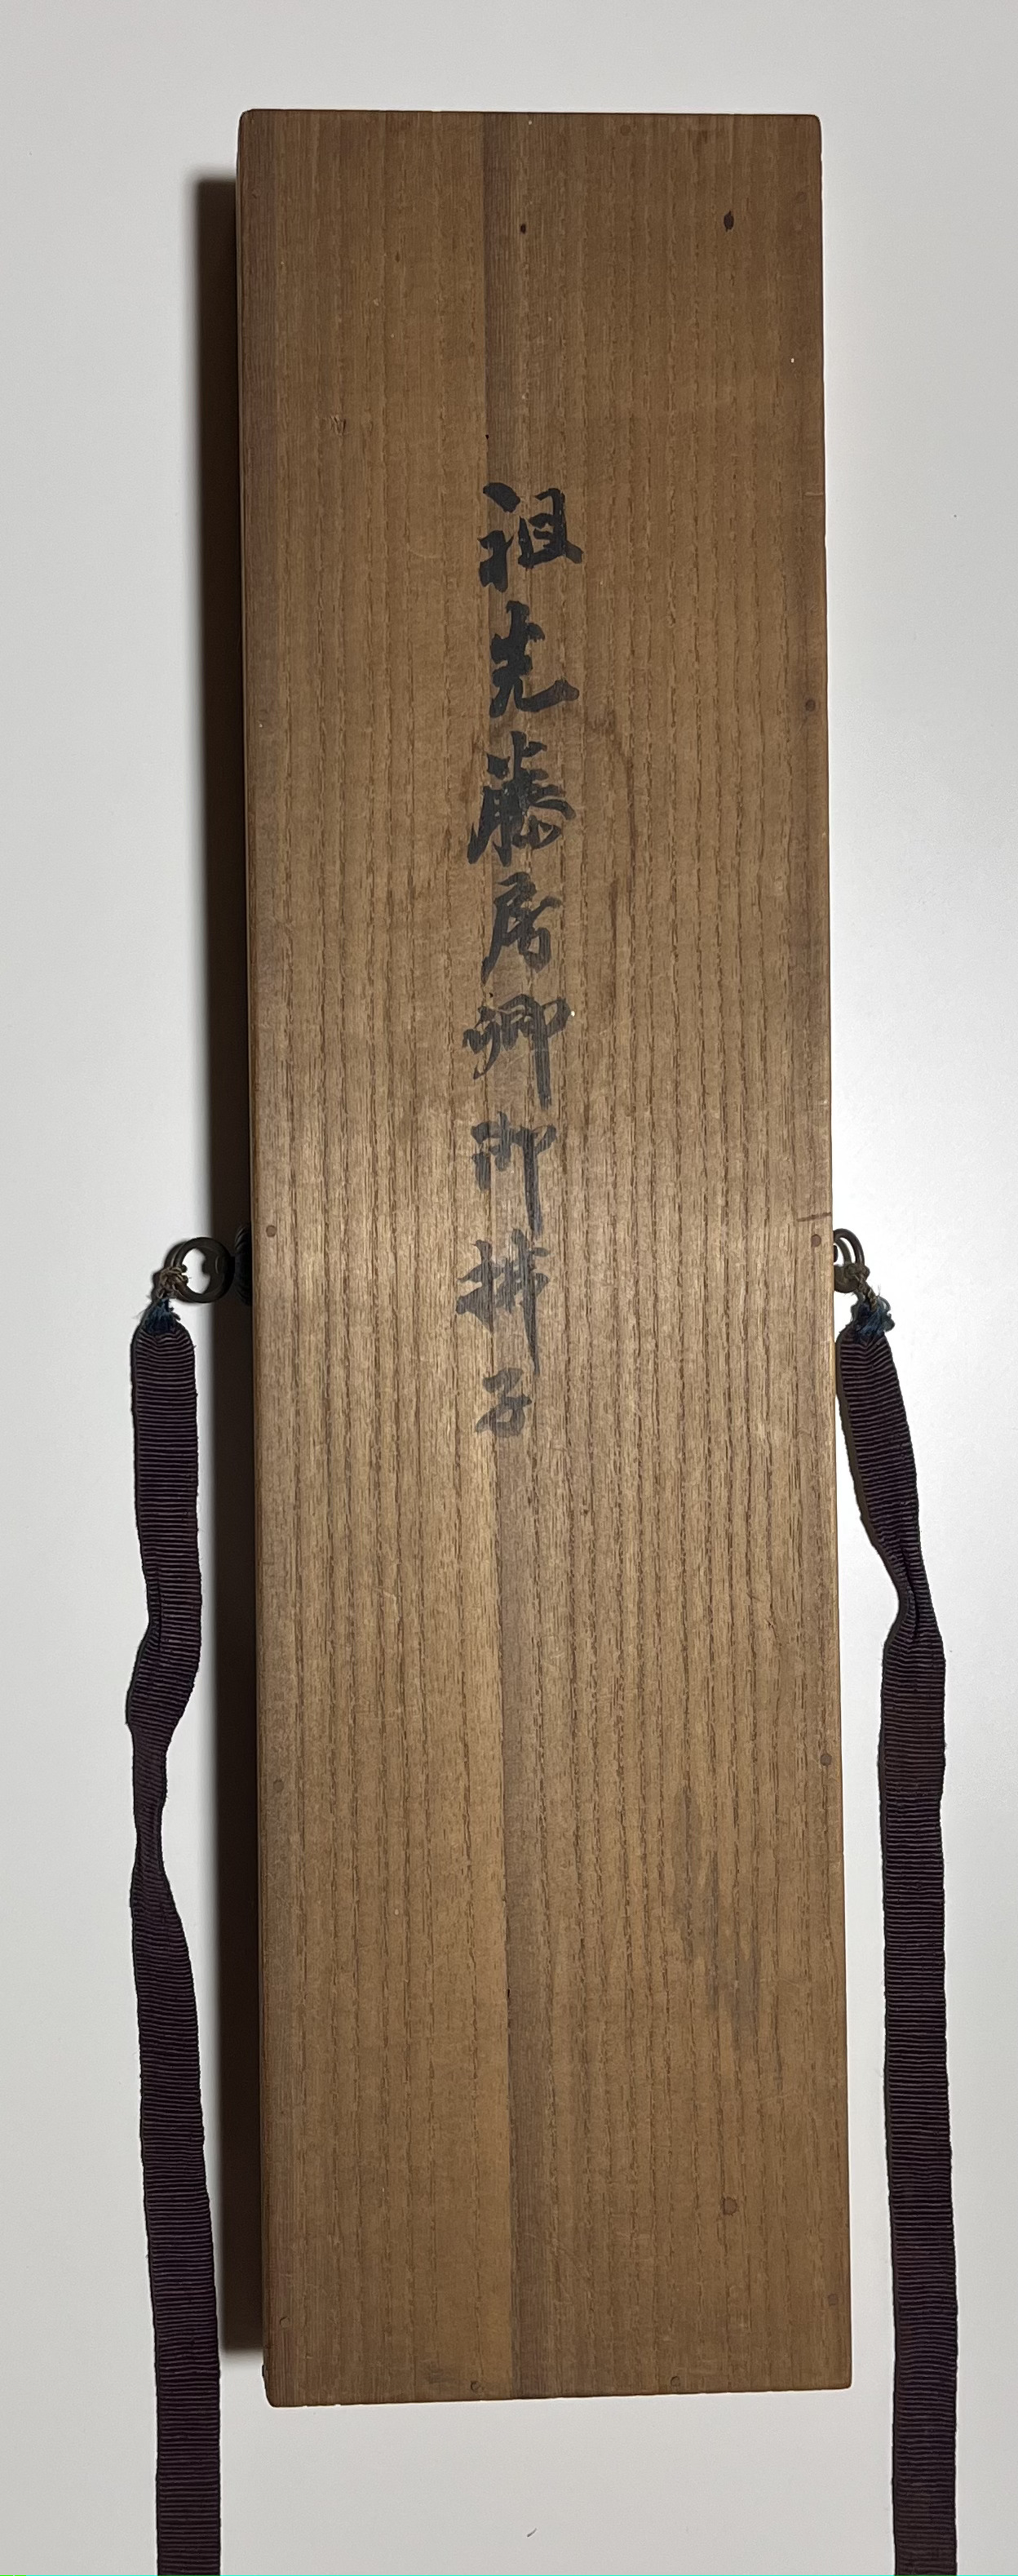 祖先藤房卿御拂子